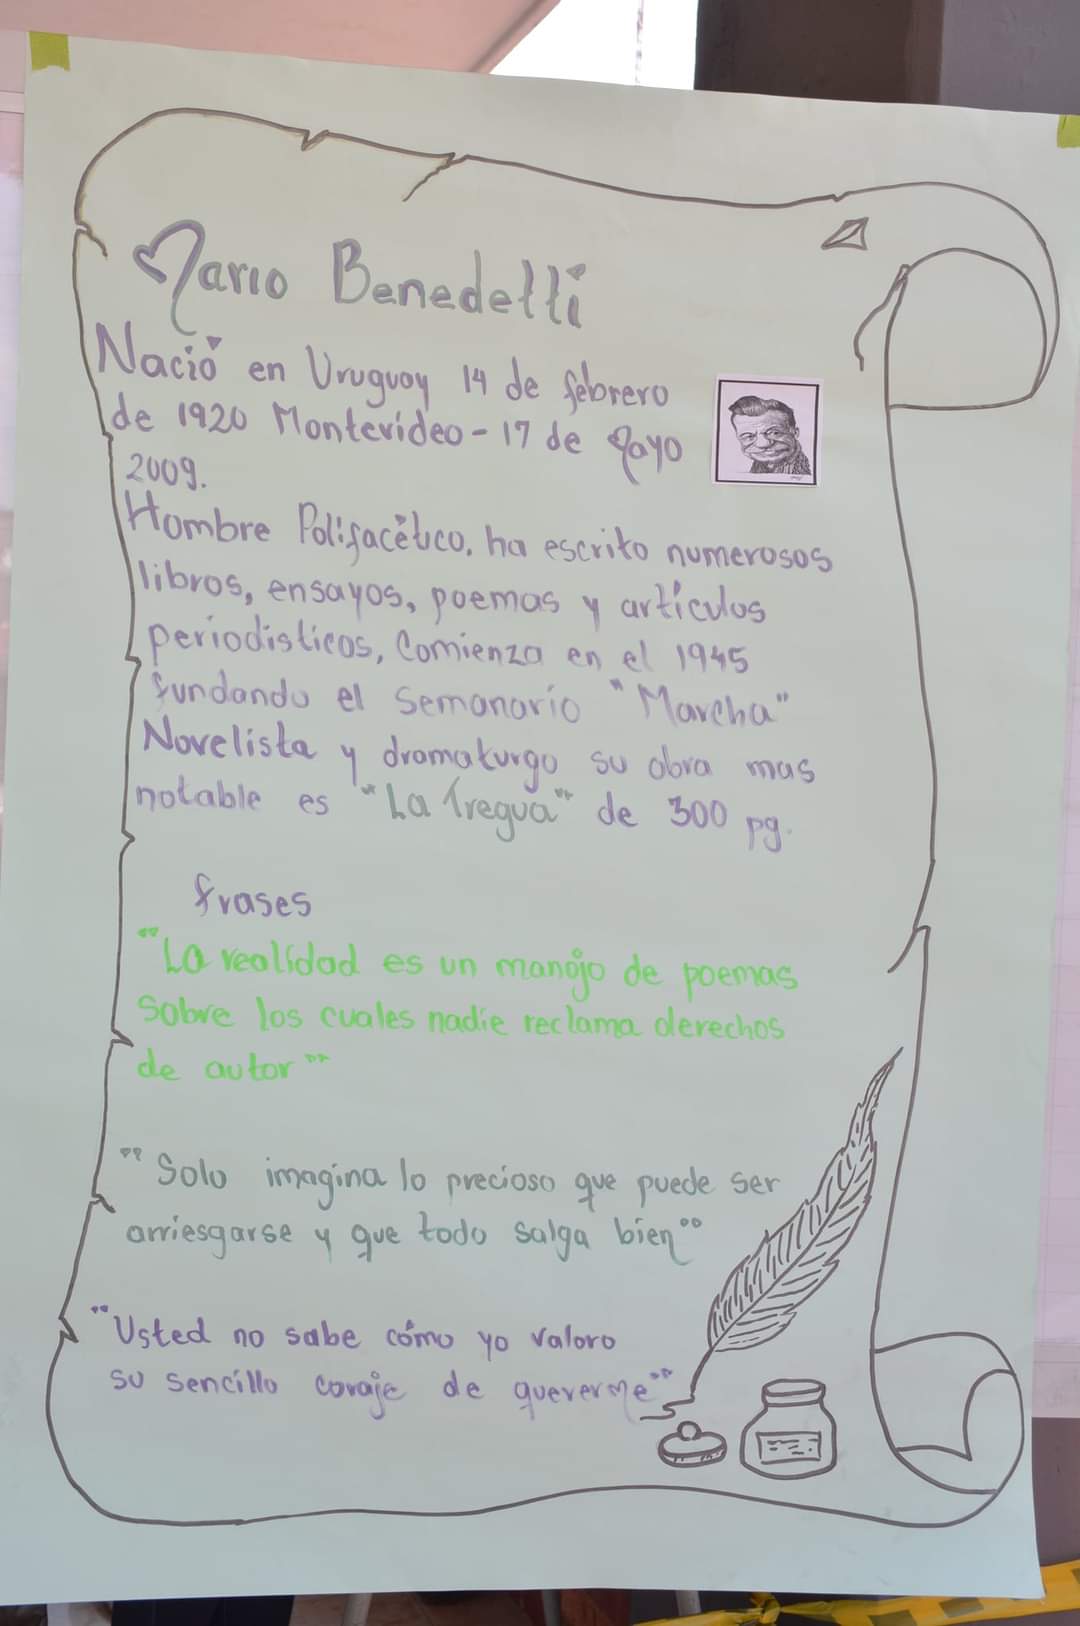 Mario Benedetti
Nació en Uruguay 14 de febrero
de 1920 Montevideo - 17 de Mayo
2009.
Hombre Polifacético, ha escrito numerosos
libros, ensayos, poemas y artículos
periodisticos, Comienza en el 1945
fundando el semanario "Marcha"
Novelista y dramaturgo su obra mas
notable es "La Tregua" de 300 pg.
frases
"La realidad es un manojo de poemas
sobre los cuales nadie reclama derechos
de autor"
"Solo imagina lo precioso que puede ser
arriesgarse y que todo salga bien"
"Usted no sabe cómo yo valoro
su sencillo coraje de quererme"